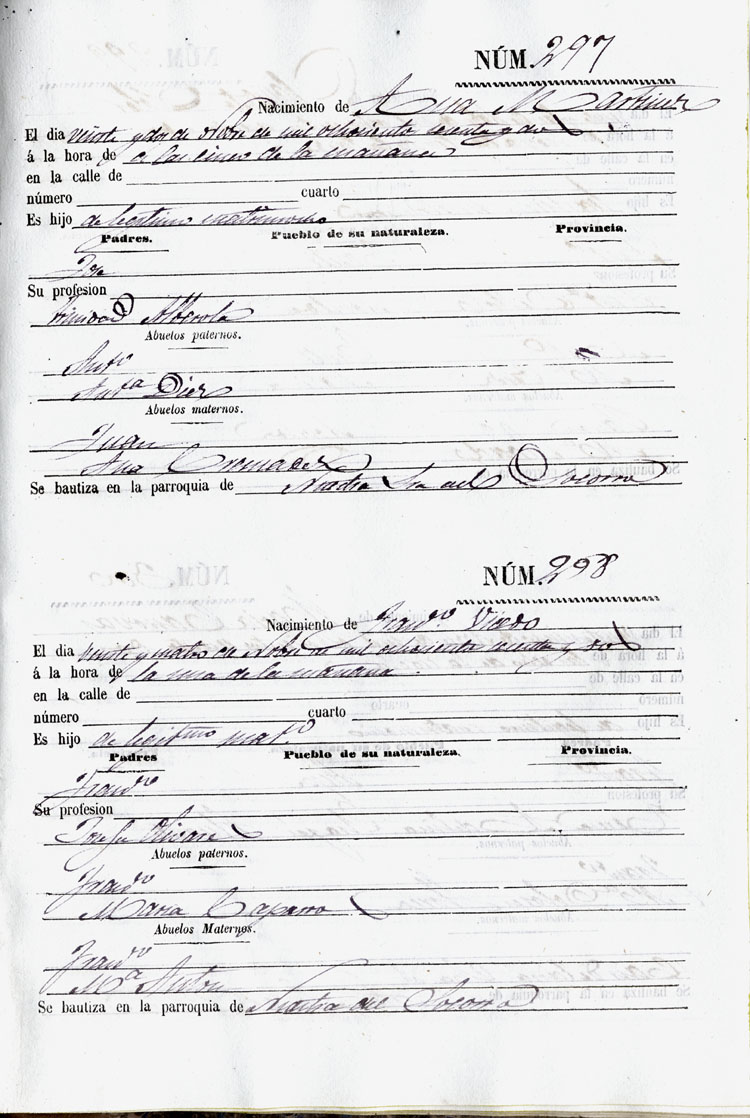 NÚM. 297
Nacimiento de Ana Martinez
El dia veinte y dos de Nobre de mil ochociento sesenta y dos
á la hora de a las cinco de la mañana
en la calle de
número cuarto
Es hijo de legitimo matrimonio
Padres. Pueblo de su naturaleza. Provincia.
Jose
Su profesion
Trinidad
Abuelos paternos.
Anto
Anta Diez
Abuelos maternos.
Juan
Ana
Se bautiza en la parroquia de Nuestra Sra del Socorro
NÚM. 298
Nacimiento de Franco
El dia veinte y cuatro de Nobre de mil ochociento sesenta y dos
á la hora de la una de la mañana
en la calle de
número cuarto
Es hijo de legitimo mato
Padres Pueblo de su naturaleza. Provincia.
Franco
Su profesion
Josefa Olivare
Abuelos paternos.
Franco
Maria Caparro
Abuelos Maternos.
Franco
Ma Anton
Se bautiza en la parroquia de Nuestra del Socorro